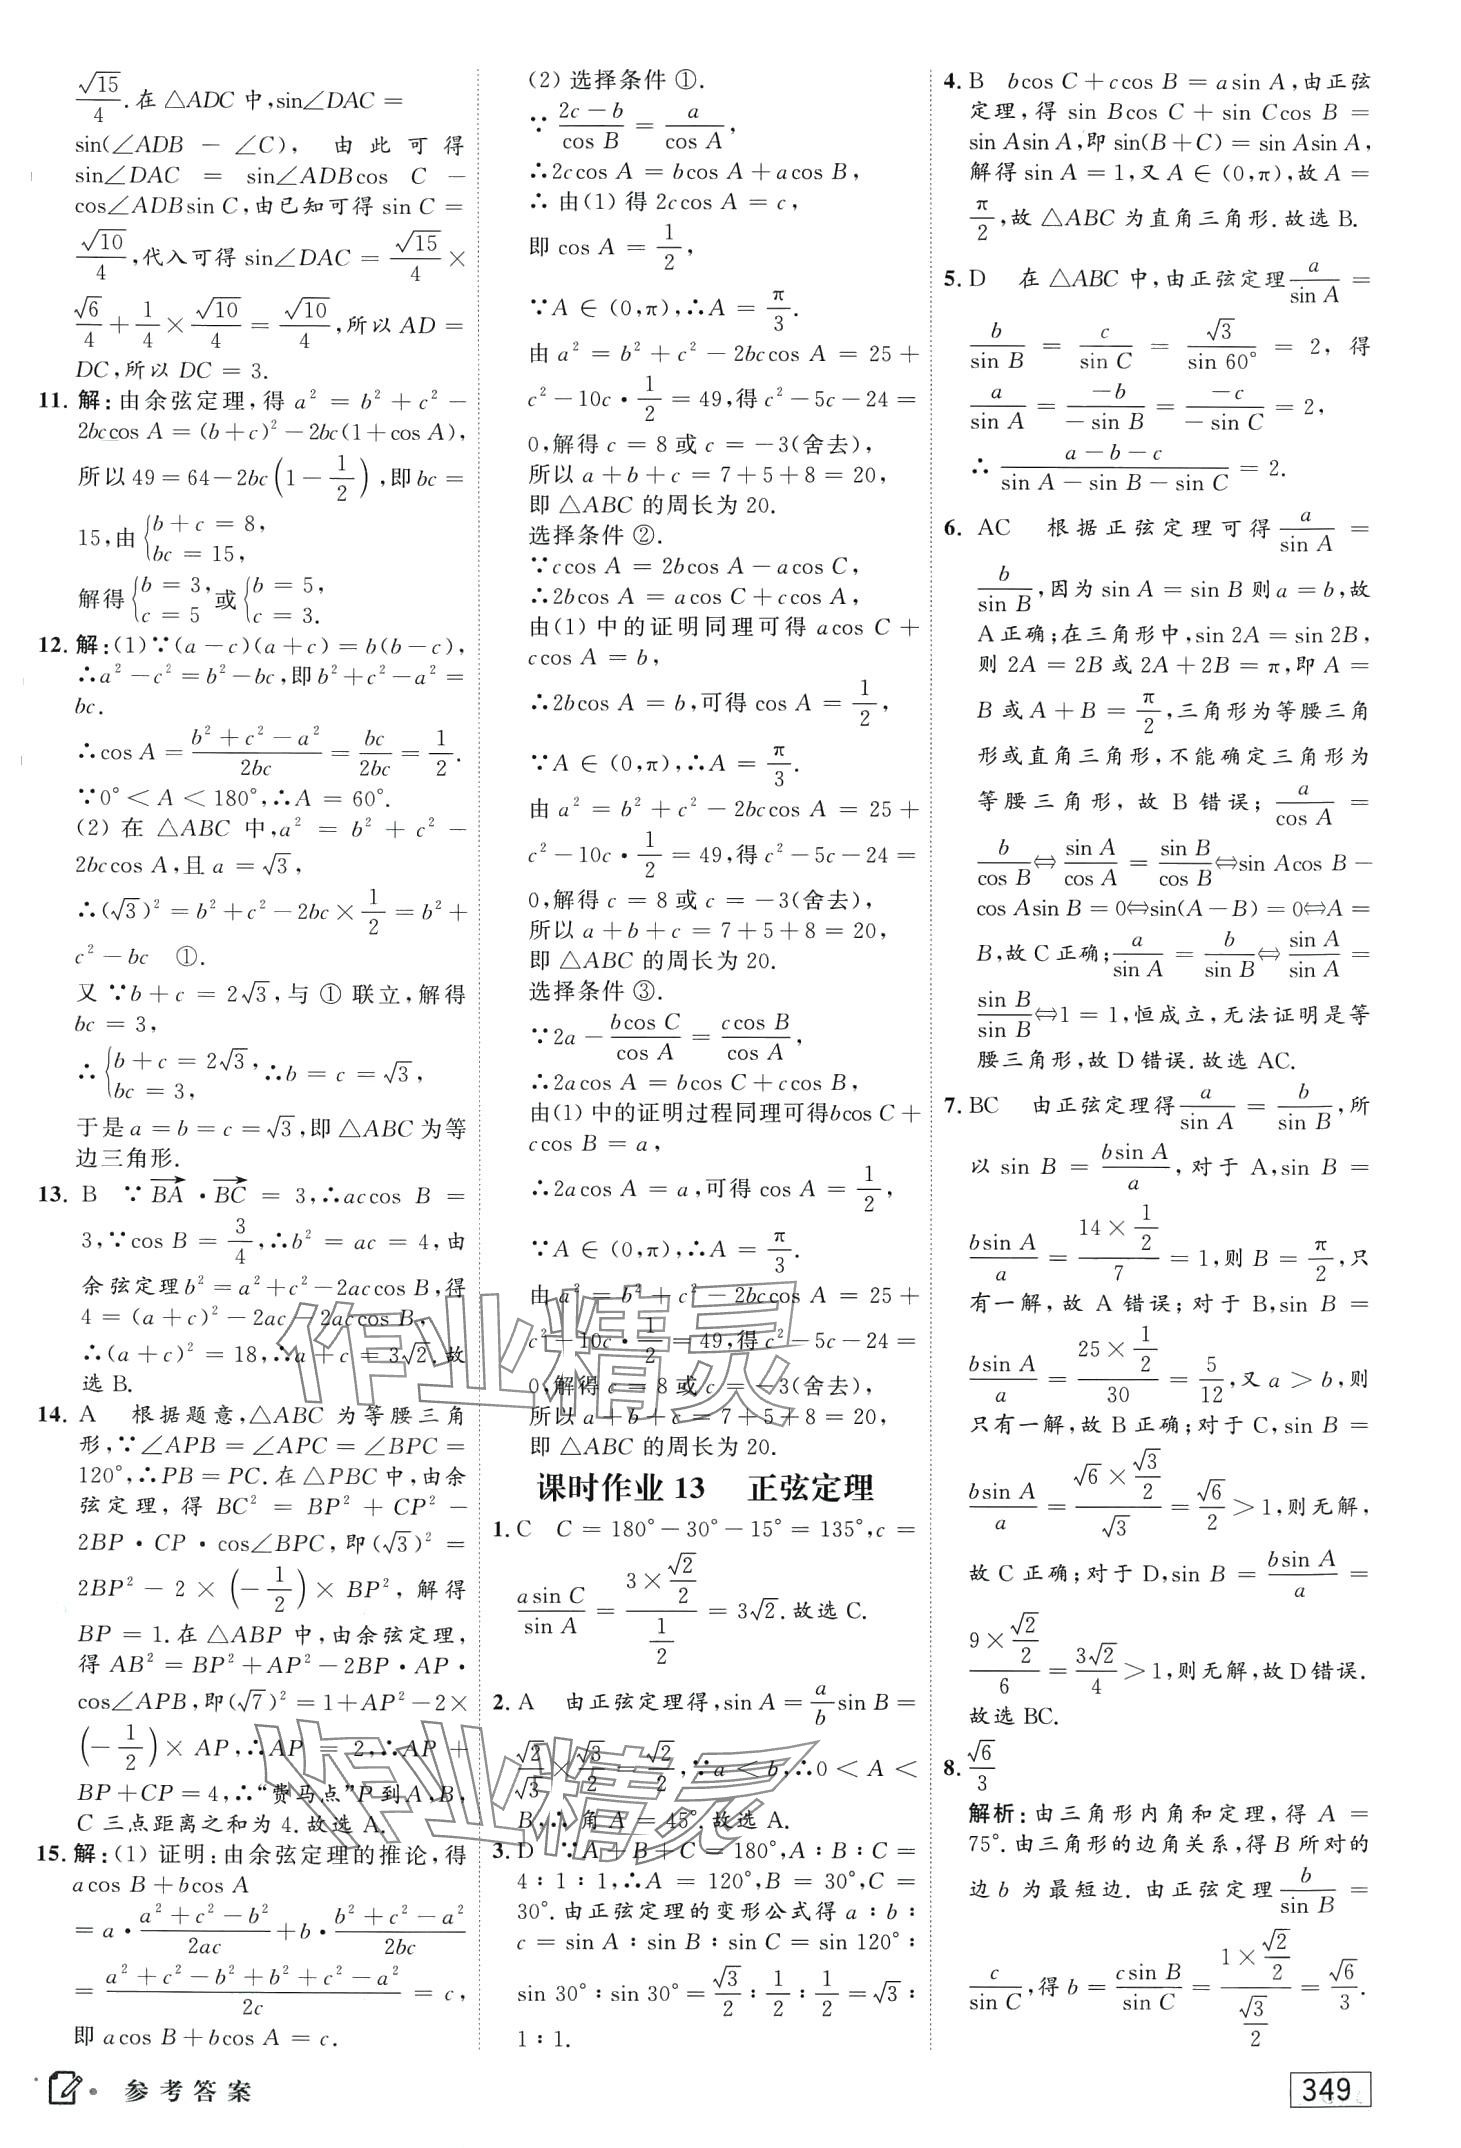 √15/4.在 △ADC 中,sin∠DAC =
sin(∠ADB − ∠C), 由此可得
sin∠DAC = sin∠ADBcos C −
cos∠ADBsin C,由已知可得 sin C =
√10/4,代入可得 sin∠DAC = √15/4 ×
√6/4 + 1/4 × √10/4 = √10/4,所以 AD =
DC,所以 DC = 3.
11. 解:由余弦定理,得 a² = b² + c² −
2bccos A = (b+c)² − 2bc(1+cos A),
所以 49 = 64 − 2bc(1 − 1/2),即 bc =
15,由{b + c = 8, bc = 15,
解得{b = 3, c = 5 或{b = 5, c = 3.
12. 解:(1)∵(a − c)(a + c) = b(b − c),
∴a² − c² = b² − bc,即b² + c² − a² =
bc.
∴cos A = (b² + c² − a²)/2bc = bc/2bc = 1/2.
∵0° < A < 180°,∴A = 60°.
(2) 在 △ABC 中,a² = b² + c² −
2bccos A,且 a = √3,
∴(√3)² = b² + c² − 2bc × 1/2 = b² +
c² − bc ①.
又 ∵b + c = 2√3,与 ① 联立,解得
bc = 3,
∴{b + c = 2√3, bc = 3, ∴b = c = √3,
于是 a = b = c = √3,即 △ABC 为等
边三角形.
13. B ∵ BA→ · BC→ = 3,∴accos B =
3,∵cos B = 3/4,∴b² = ac = 4,由
余弦定理b² = a² + c² − 2accos B,得
4 = (a + c)² − 2ac − 2accos B,
∴(a + c)² = 18,∴a + c = 3√2.故
选 B.
14. A 根据题意,△ABC 为等腰三角
形,∵∠APB = ∠APC = ∠BPC =
120°,∴PB = PC.在 △PBC 中,由余
弦定理,得 BC² = BP² + CP² −
2BP · CP · cos∠BPC,即(√3)² =
2BP² − 2 × (−1/2) × BP²,解得
BP = 1.在 △ABP 中,由余弦定理,
得 AB² = BP² + AP² − 2BP · AP ·
cos∠APB,即(√7)² = 1 + AP² − 2 ×
(−1/2) × AP,∴AP = 2,∴AP +
BP + CP = 4,∴“费马点”P 到 A,B,
C 三点距离之和为 4.故选 A.
15. 解:(1) 证明:由余弦定理的推论,得
acos B + bcos A
= a · (a² + c² − b²)/2ac + b · (b² + c² − a²)/2bc
= (a² + c² − b² + b² + c² − a²)/2c = c,
即 acos B + bcos A = c.
(2) 选择条件 ①.
∵ (2c − b)/cos B = a/cos A,
∴2ccos A = bcos A + acos B,
∴ 由(1) 得 2ccos A = c,
即 cos A = 1/2,
∵A ∈ (0,π),∴A = π/3.
由 a² = b² + c² − 2bccos A = 25 +
c² − 10c · 1/2 = 49,得 c² − 5c − 24 =
0,解得 c = 8 或 c = −3(舍去),
所以 a + b + c = 7 + 5 + 8 = 20,
即 △ABC 的周长为 20.
选择条件 ②.
∵ccos A = 2bcos A − acos C,
∴2bcos A = acos C + ccos A,
由(1) 中的证明同理可得 acos C +
ccos A = b,
∴2bcos A = b,可得 cos A = 1/2,
∵A ∈ (0,π),∴A = π/3.
由 a² = b² + c² − 2bccos A = 25 +
c² − 10c · 1/2 = 49,得 c² − 5c − 24 =
0,解得 c = 8 或 c = −3(舍去),
所以 a + b + c = 7 + 5 + 8 = 20,
即 △ABC 的周长为 20.
选择条件 ③.
∵2a − bcos C/cos A = ccos B/cos A,
∴2acos A = bcos C + ccos B,
由(1) 中的证明过程同理可得bcos C +
ccos B = a,
∴2acos A = a,可得 cos A = 1/2,
∵A ∈ (0,π),∴A = π/3.
由 a² = b² + c² − 2bccos A = 25 +
c² − 10c · 1/2 = 49,得 c² − 5c − 24 =
0,解得 c = 8 或 c = −3(舍去),
所以 a + b + c = 7 + 5 + 8 = 20,
即 △ABC 的周长为 20.
课时作业 13 正弦定理
1. C C = 180° − 30° − 15° = 135°,c =
asin C/sin A = (3 × √2/2)/(1/2) = 3√2.故选 C.
2. A 由正弦定理得,sin A = a/b sin B =
√2/√3 × √3/2 = √2/2,∵a < b,∴0 < A <
B,∴角 A = 45°.故选 A.
3. D ∵A + B + C = 180°,A∶B∶C =
4∶1∶1,∴A = 120°,B = 30°,C =
30°.由正弦定理的变形公式得 a∶b∶
c = sin A∶sin B∶sin C = sin 120°∶
sin 30°∶sin 30° = √3/2∶1/2∶1/2 = √3∶
1∶1.
4. B bcos C + ccos B = asin A,由正弦
定理,得 sin Bcos C + sin Ccos B =
sin Asin A,即 sin(B + C) = sin Asin A,
解得 sin A = 1,又 A ∈ (0,π),故 A =
π/2,故 △ABC 为直角三角形.故选 B.
5. D 在 △ABC 中,由正弦定理 a/sin A =
b/sin B = c/sin C = √3/sin 60° = 2, 得
a/sin A = −b/−sin B = −c/−sin C = 2,
∴ (a − b − c)/(sin A − sin B − sin C) = 2.
6. AC 根据正弦定理可得 a/sin A =
b/sin B,因为 sin A = sin B 则 a = b,故
A正确;在三角形中,sin 2A = sin 2B,
则 2A = 2B 或 2A + 2B = π,即 A =
B 或 A + B = π/2,三角形为等腰三角
形或直角三角形,不能确定三角形为
等腰三角形,故 B 错误; a/cos A =
b/cos B ⇔ sin A/cos A = sin B/cos B ⇔ sin Acos B −
cos Asin B = 0⇔sin(A − B) = 0⇔A =
B,故 C 正确; a/sin A = b/sin B ⇔ sin A/sin A =
sin B/sin B ⇔ 1 = 1,恒成立,无法证明是等
腰三角形,故 D 错误.故选 AC.
7. BC 由正弦定理得 a/sin A = b/sin B,所
以 sin B = bsin A/a,对于 A,sin B =
bsin A/a = (14 × 1/2)/7 = 1,则 B = π/2,只
有一解,故 A 错误;对于 B,sin B =
bsin A/a = (25 × 1/2)/30 = 5/12,又 a > b,则
只有一解,故 B 正确;对于 C,sin B =
bsin A/a = (√6 × √3/2)/√3 = √6/2 > 1,则无解,
故 C 正确;对于 D,sin B = bsin A/a =
(9 × √2/2)/6 = 3√2/4 > 1,则无解,故 D 错误.
故选 BC.
8. √6/3
解析:由三角形内角和定理,得 A =
75°.由三角形的边角关系,得 B 所对的
边 b 为最短边. 由正弦定理 b/sin B =
c/sin C,得 b = csin B/sin C = (1 × √2/2)/(√3/2) = √6/3.
作业精灵
作业精灵
参考答案
349